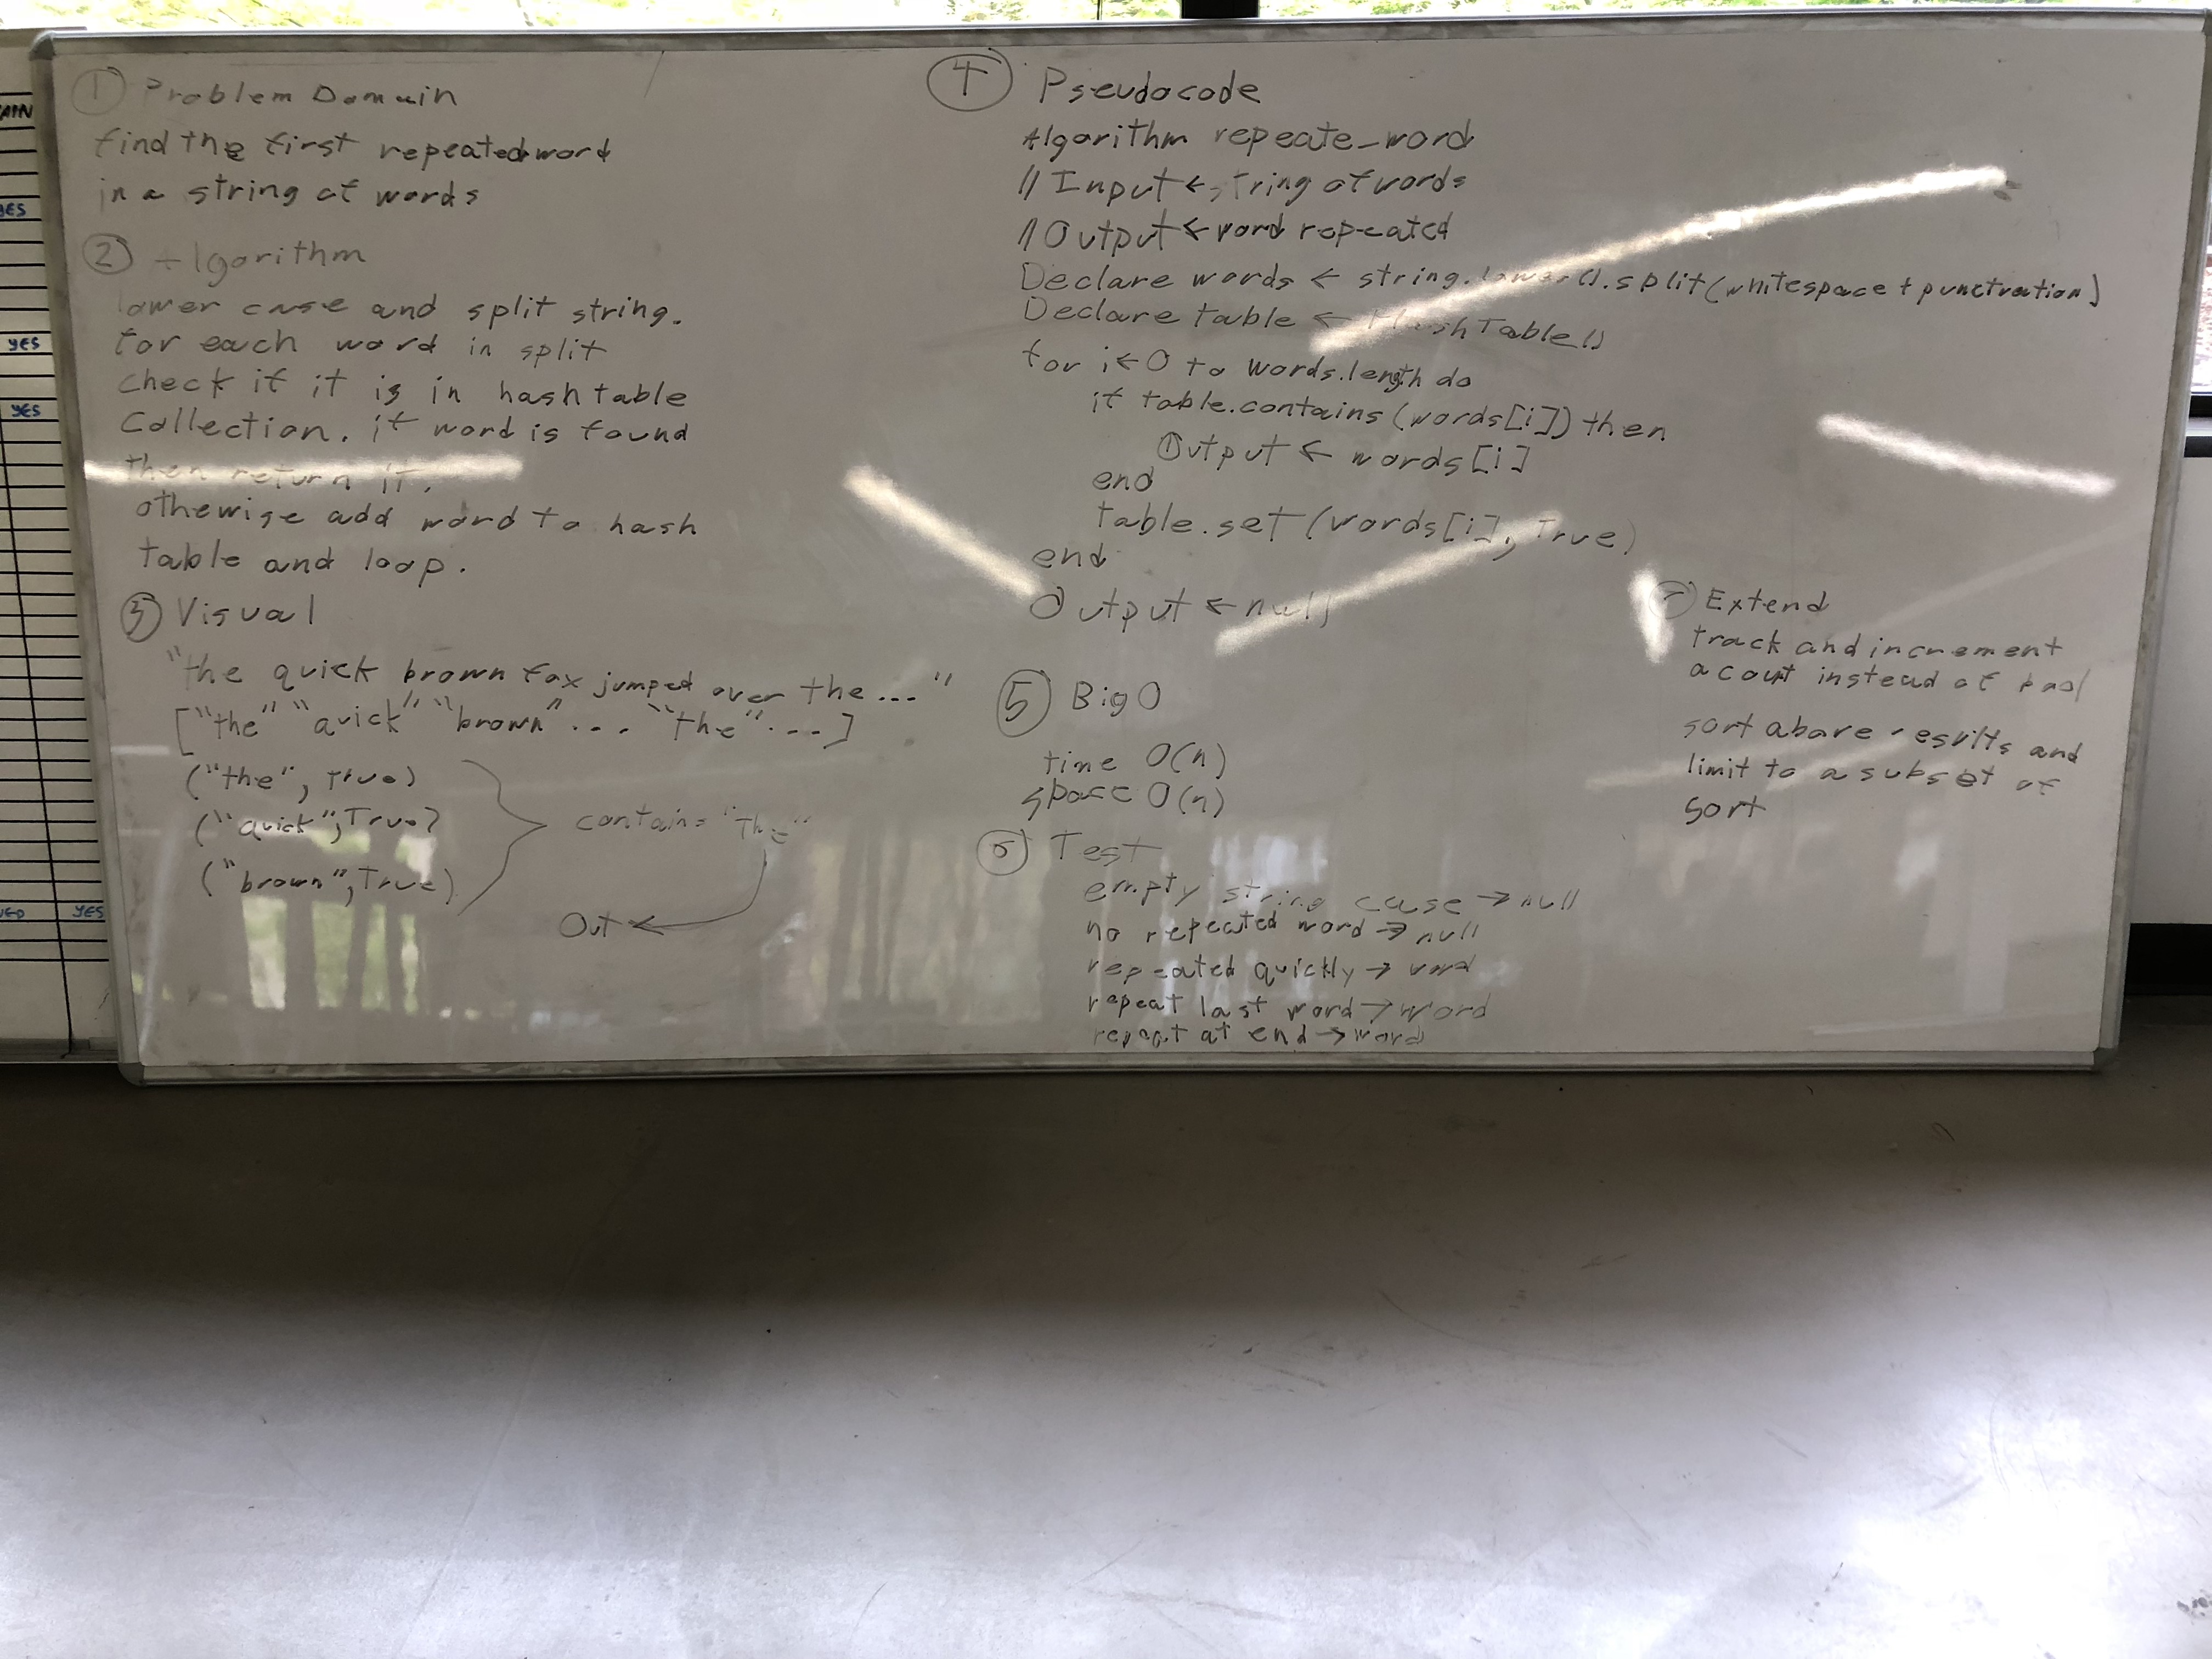 ① Problem Domain
find the first repeated word
in a string of words
② Algorithm
lower case and split string.
for each word in split
check if it is in hash table
Collection. if word is found
then return it.
othewise add word to hash
table and loop.
③ Visual
"the quick brown fox jumped over the ..."
["the" "quick" "brown" ... "the" ...]
("the", True)
("quick", True)
("brown", True)
contains "the"
Out ←
④ Pseudocode
Algorithm repeate_word
// Input ← string of words
// Output ← word repeated
Declare words ← string.lower().split(whitespace + punctuation)
Declare table ← HashTable()
for i ← 0 to words.length do
if table.contains (words[i]) then
Output ← words[i]
end
table.set (words[i], True)
end
Output ← null
⑤ Big O
time O(n)
space O(n)
⑥ Test
empty string case → null
no repeated word → null
repeated quickly → word
repeat last word → word
repeat at end → word
⑦ Extend
track and increment
a count instead of bool
sort above results and
limit to a subset of
sort
AIN
YES
YES
YES
YES